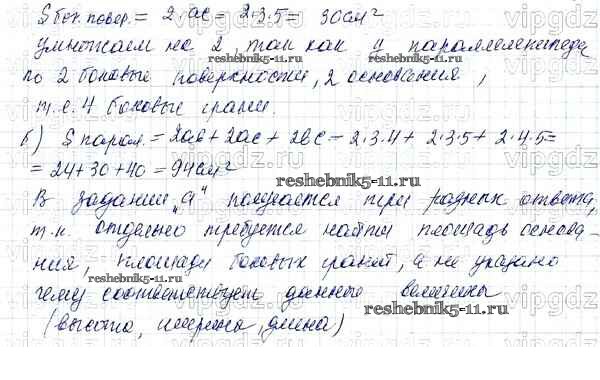 S бок. повер. = 2·ac = 2·3·5 = 30 см²
умножаем на 2, так как у параллелепипеда
по 2 боковые поверхности, 2 основания,
т.е. 4 боковые грани.
б) S парал. = 2ab + 2ac + 2bc = 2·3·4 + 2·3·5 + 2·4·5 =
= 24 + 30 + 40 = 94 см²
В задании „а" получается три разных ответа,
т.к. отдельно требуется найти площадь основа-
ния, площади боковых граней, а не указано
чему соответствует данные величины
(высота, ширина, длина)
reshebnik5-11.ru
reshebnik5-11.ru
reshebnik5-11.ru
reshebnik5-11.ru
vipgdz.ru